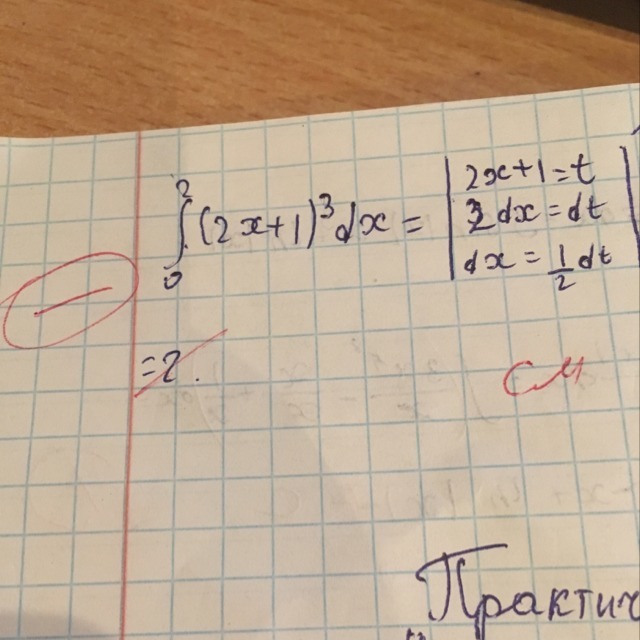 ∫₀² (2x+1)³dx = | 2x+1=t
2dx=dt
dx = 1/2 dt |
=2.
см
Практич